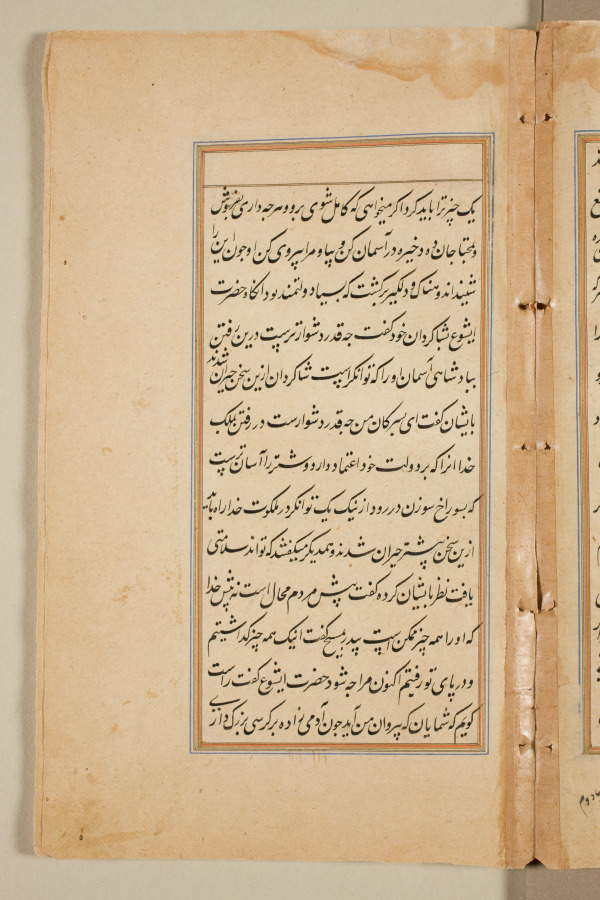 یک چیز ترا باید کرد اکر میخواهی که کامل شوی برو و هرچه داری بفروش
و بمحتاجان ده و ذخیره در آسمان کن و بیا و مرا پیروی کن او چون این را
شنید اندوهناک و دلکیر برکشت که بسیار دولتمند بود انکاه حضرت
ایشوع بشاکردان خود کفت چه قدر دشوارترست درین رفتن
ببادشاهی آسمان او را که توانکر است شاکردان ازین سخن حیران شدند
بایشان کفت ای پسرکان من چه قدر دشوارست در رفتن بملک
خدا انرا که بر دولت خود اعتماد دارد و شتر را آسان ترست
که بسوراخ سوزن در رود از نیک یک توانکر در ملکوت خدا راه یابد
ازین سخن پیشتر حیران شدند و همدیکر میکفتند که تواند سلامتی
یافت نظر بایشان کرده کفت پیش مردم محال است نه پیش خدا
که او را همه چیز ممکن است پیدر بمسیح کفت اینک همه چیز کذاشتیم
و در پای تو رفتیم اکنون مرا چه شود حضرت ایشوع کفت راست
کویم که شمایان که پیروان من آید چون آدمی زاده بر کرسی بزرک داری